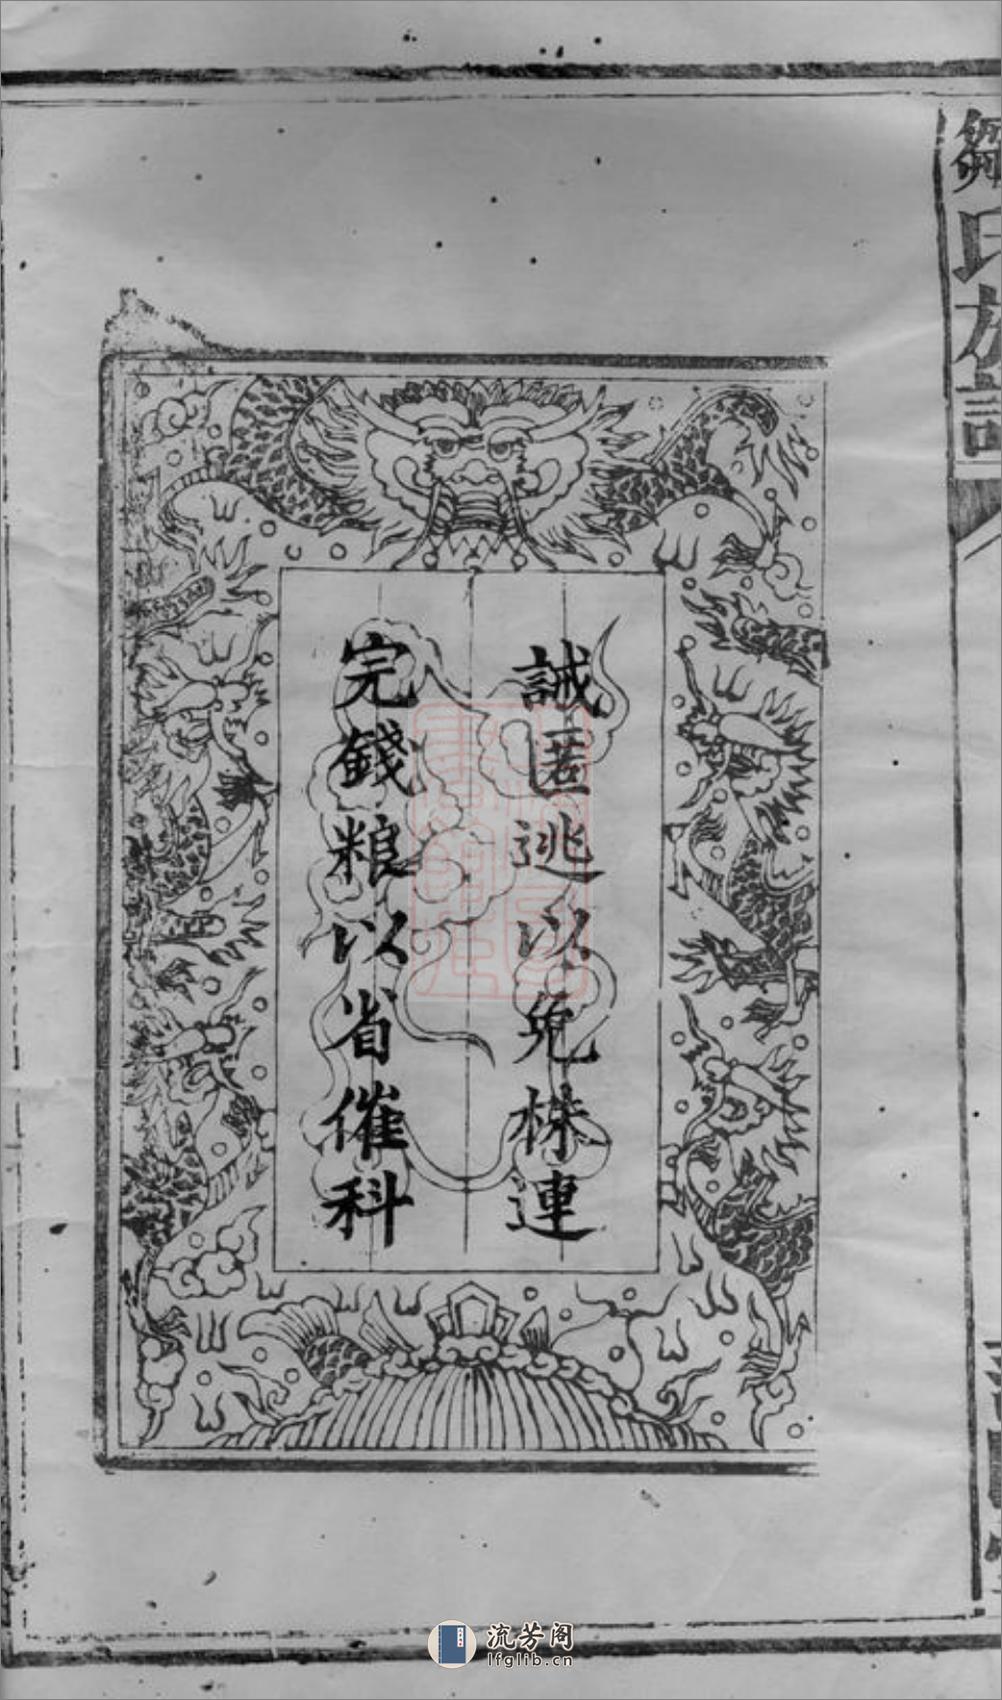 誡匿逃以免株連
完錢粮以省催科
流芳阁
lfglib.cn